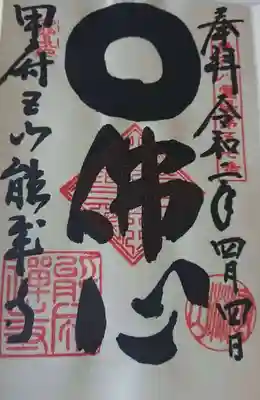 奉拝 令和二年 四月四日
佛心
甲府五山 能成寺